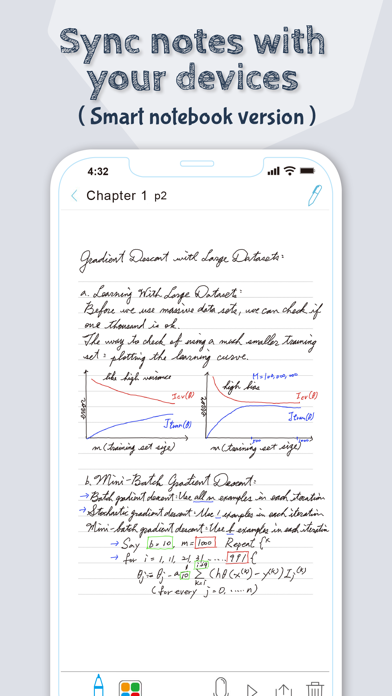 Sync notes with
your devices
( Smart notebook version )
4:32
Chapter 1 p2
Gradient Descent with Large Datasets:
a. Learning With Large Datasets:
Before we use massive data sets, we can check if
one thousand is ok.
The way to check of using a much smaller training
set: plotting the learning curve.
like high variance
error
Jcv(θ)
Jtrain(θ)
m (training set size)
M=100,000,000
high bias
error
Jcv(θ)
Jtrain(θ)
m (training set size)
b. Mini-Batch Gradient Descent:
→ Batch gradient descent: Use all m examples in each iteration
→ Stochastic gradient descent: Use 1 examples in each iteration
Mini-batch gradient descent: Use b examples in each iteration
→ Say b=10, m=1000 Repeat {
→ for i = 1, 11, 21, 31, ..... 991 {
θj := θj - a 1/10 Σ (hθ(x⁽ᵏ⁾) - y⁽ᵏ⁾)
i+9
k=i
(for every j=0, ..... n)